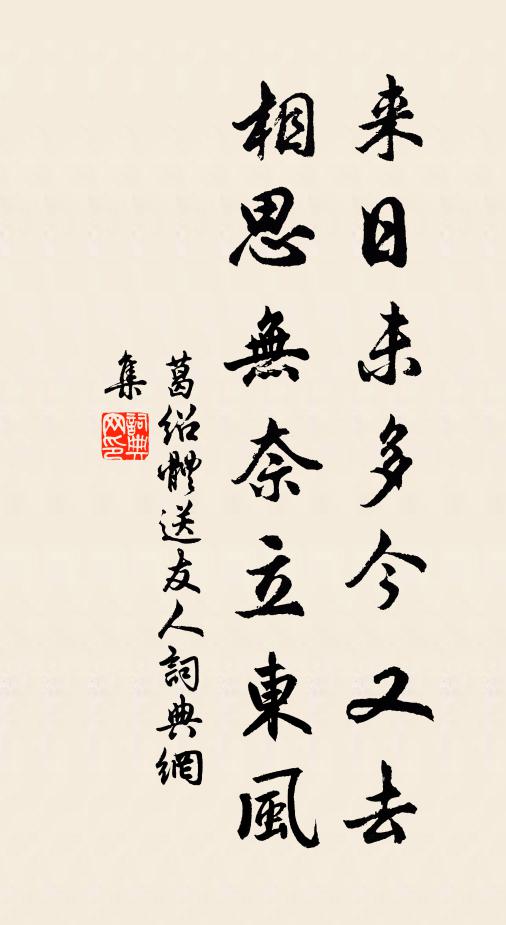 来日未多今又去
相思無奈立東風
葛绍體送友人詞典網
集
詞典
网印